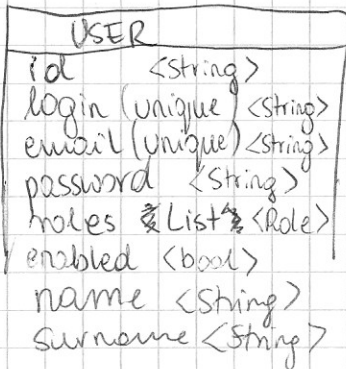 USER
id <String>
login (unique) <String>
email (unique) <String>
password <String>
roles List <Role>
enabled <bool>
name <String>
surname <String>